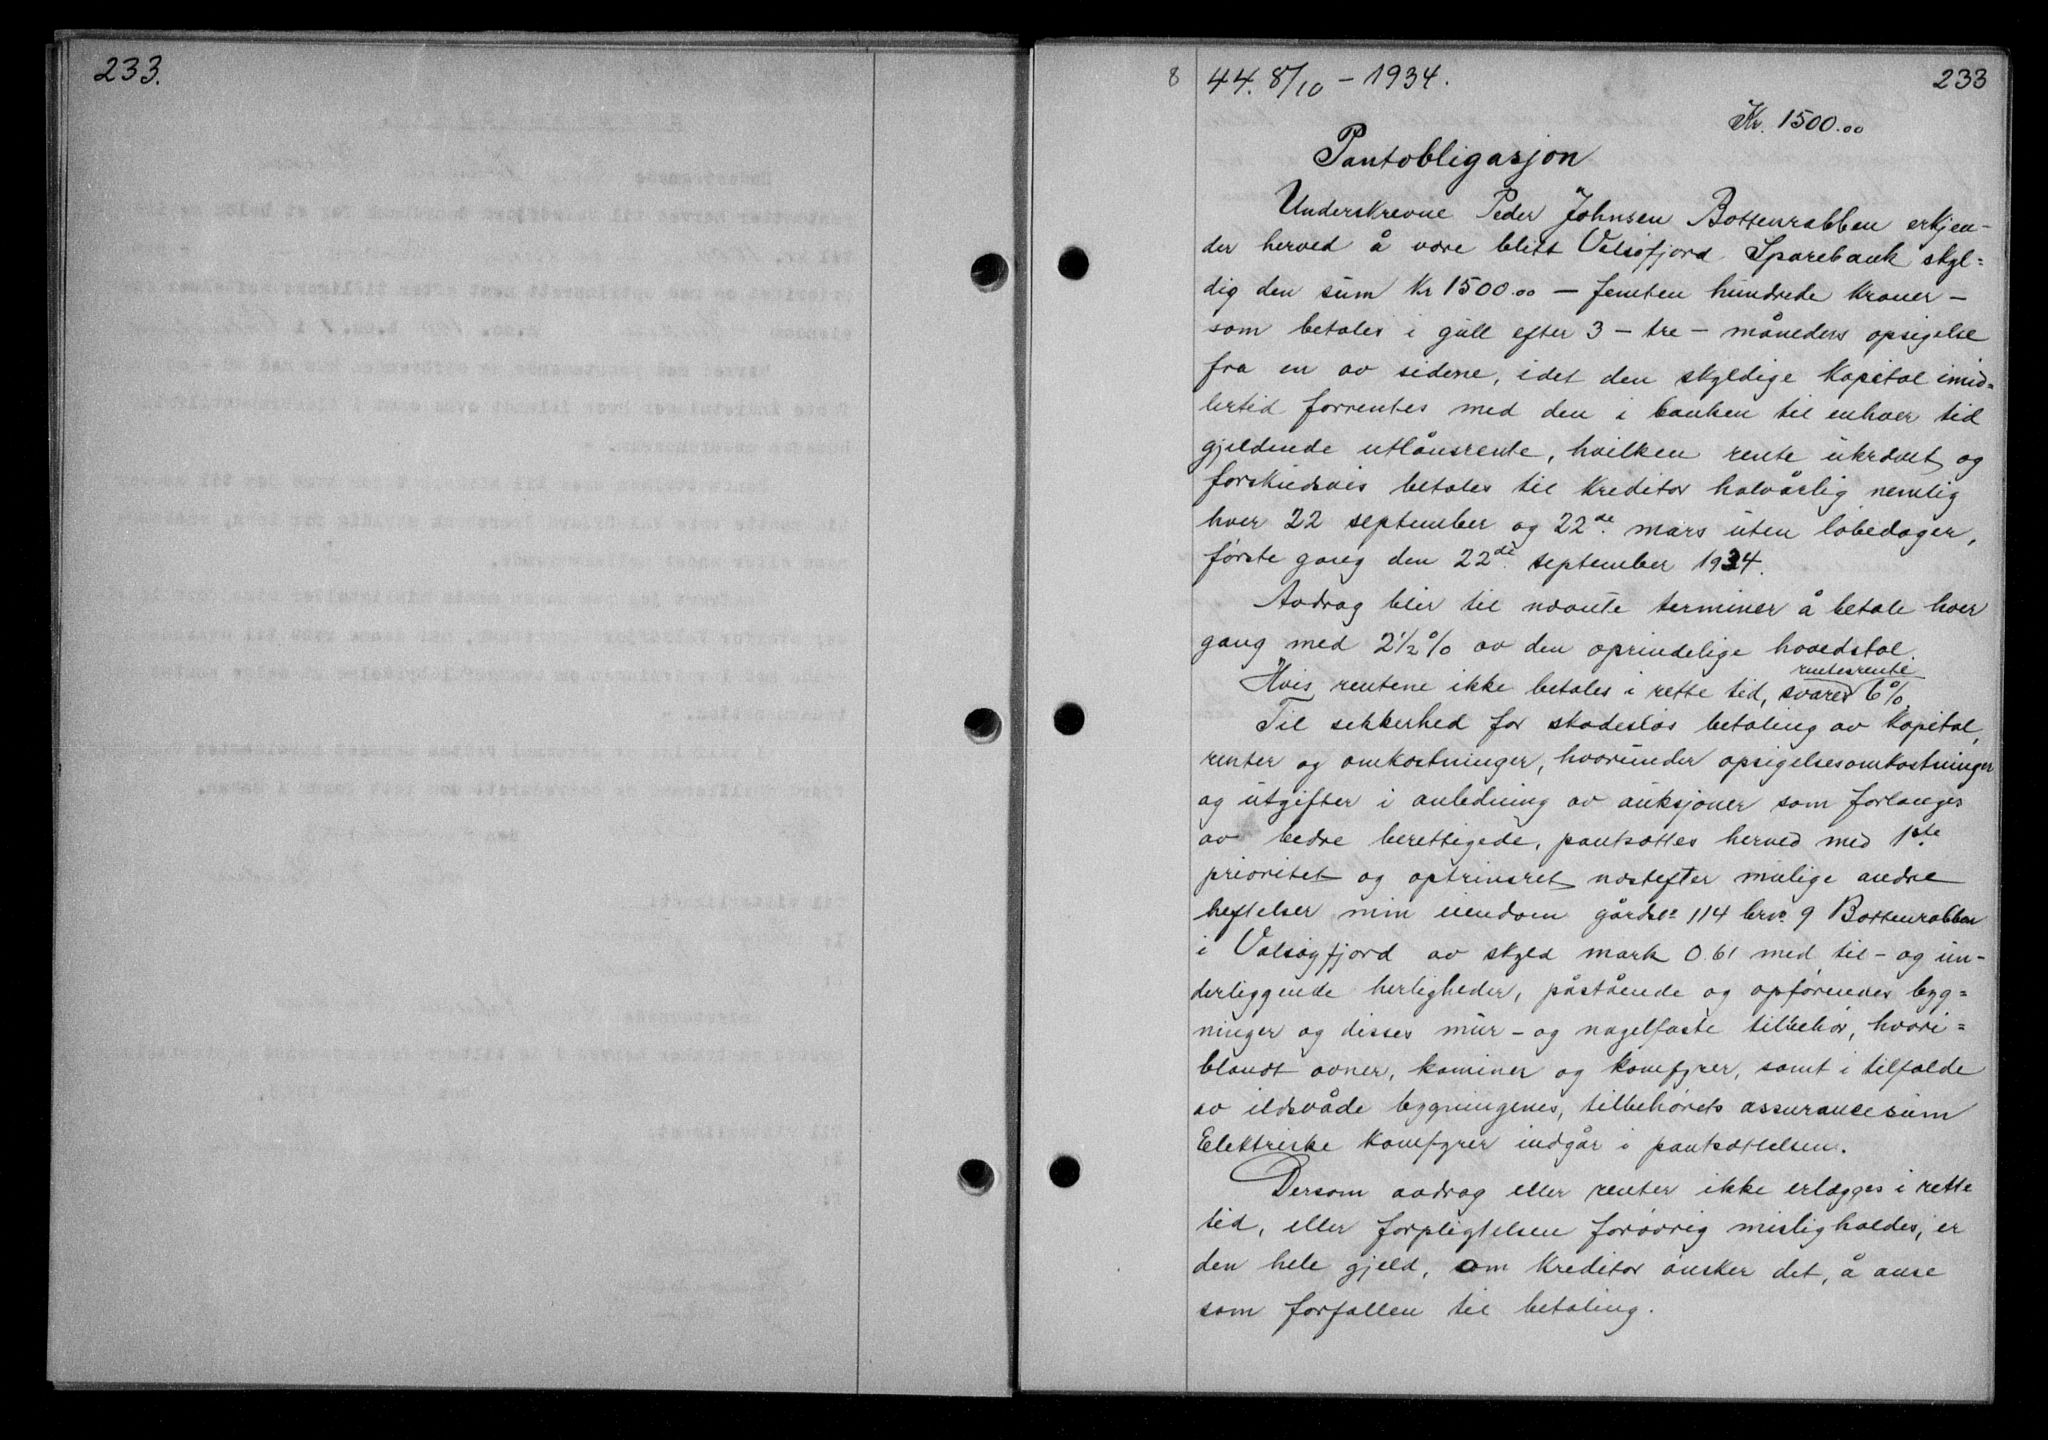 233.
8
44. 8/10 - 1934.
233
Kr. 1500.00
Pantobligasjon
Underskrevne Peder Johnsen Bottenrabben erkjen-
der herved å være blitt Valsøfjord Sparebank skyl=
dig den sum Kr 1500.00 — femten hundrede kroner —
som betales i gull efter 3 - tre - måneders opsigelse
fra en av sidene, idet den skyldige kapital imid=
lertid forrentes med den i banken til enhver tid
gjeldende utlånsrente, hvilken rente ukrævet og
forskudsvis betales til kreditor halvårlig nemlig
hver 22 september og 22de mars uten løbedager,
første gang den 22de september 1934.
Avdrag blir til nævnte terminer å betale hver
gang med 2½% av den oprindelige hovedstol.
Hvis rentene ikke betales i rette tid, svares 6%
rentesrente
Til sikkerhed for skadesløs betaling av kapital,
renter og omkostninger, hvorunder opsigelsesomkostninger
og utgifter i anledning av auksjoner som forlanges
av bedre berettigede, pantsættes herved med 1ste
prioritet og optrinsret næstefter mulige andre
heftelser min eiendom gårdsnr 114 brnr. 9 Bottenrabben
i Valsøyfjord av skyld mark 0.61 med til- og un-
derliggende herligheder, påstående og opførendes byg=
ninger og disses mur- og nagelfaste tilbehør, hvori=
blandt ovner, kaminer og komfyrer, samt i tilfælde
av ildsvåde bygningenes, tilbehørets assurancesum
Elektriske komfyrer indgår i pantsættelsen.
Dersom avdrag eller renter ikke erlægges i rette
tid, eller forpligtelsen forøvrig misligholdes, er
den hele gjeld, om kreditor ønsker det, å anse
som forfallen til betaling.